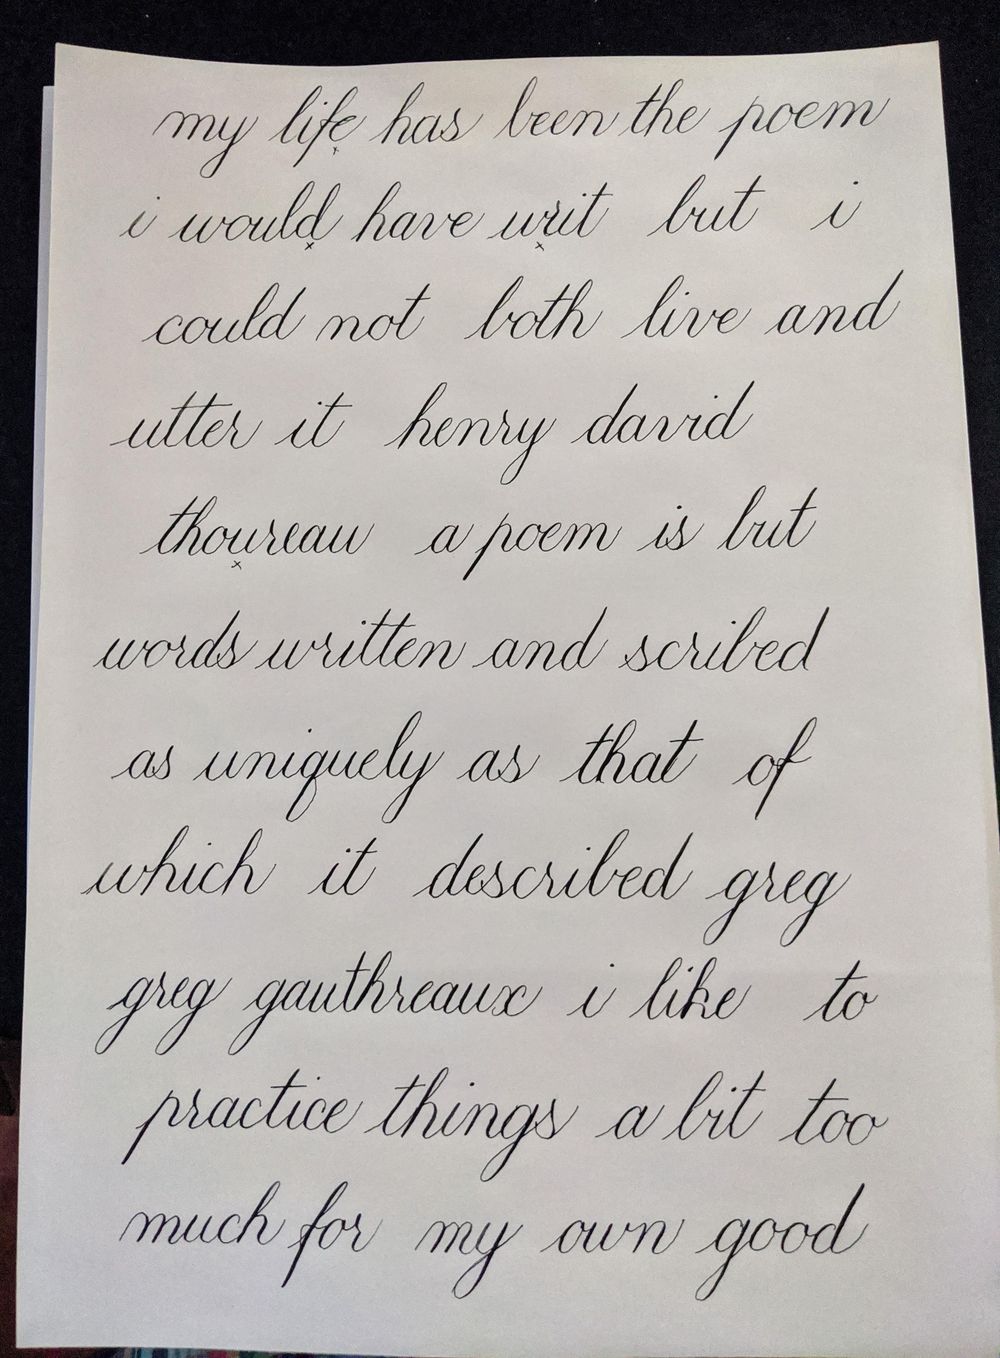 my life has been the poem
i would have writ but i
could not both live and
utter it henry david
thoureau a poem is but
words written and scribed
as uniquely as that of
which it described greg
greg gauthreaux i like to
practice things a bit too
much for my own good